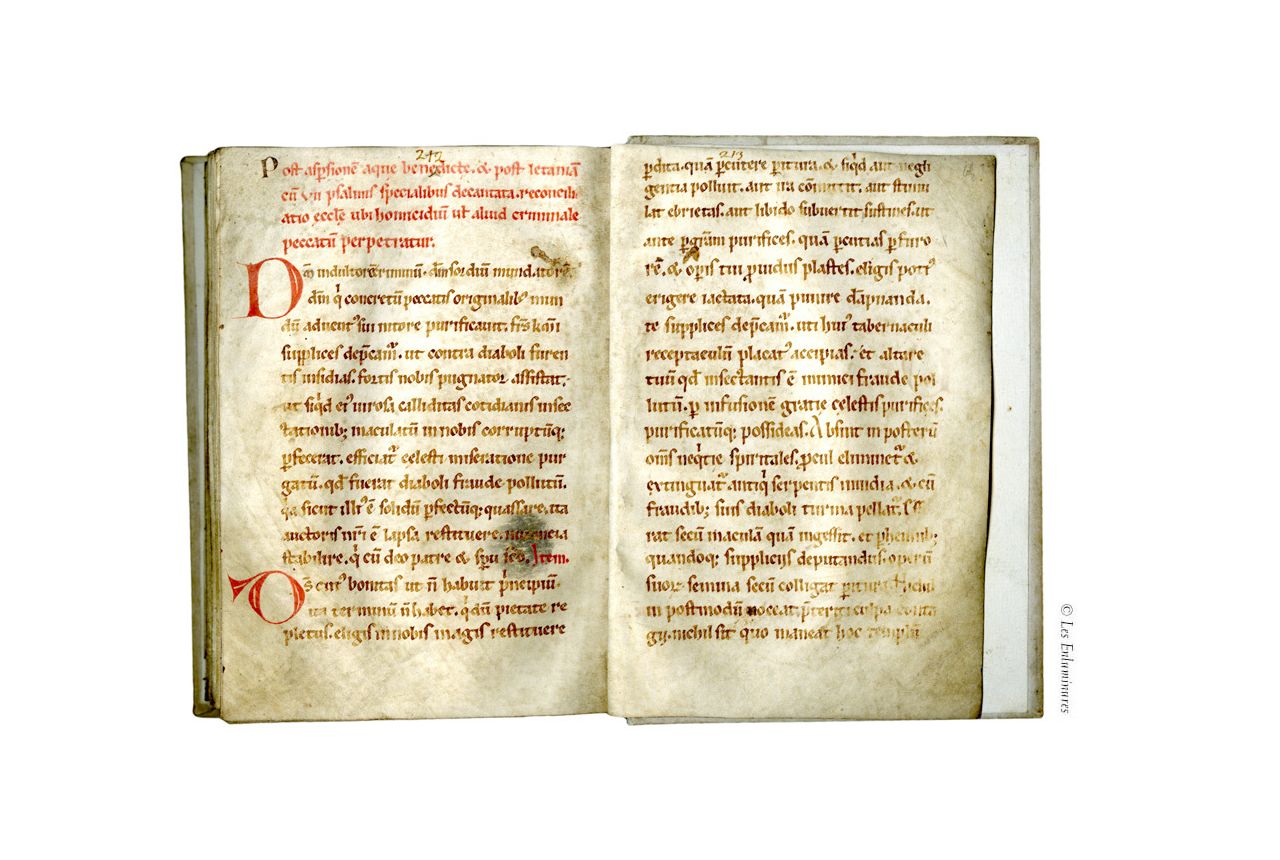 242
Post aspsionē aque benedicte. & post letaniā
cū vii psalmis specialibus decantata. reconcili
atio eccle ubi homicidiū ul aliud criminale
peccatū perpetratur.
Dm indultorē criminū. dm sordiū mundatorē.
dm q̍ concretū peccatis originalib; mun
dū aduent᾿ sui nitore purificauit. frs kmi
supplices depcam᾿. ut contra diaboli furen
tis insidias. fortis nobis pugnator assistat.
ut siqd ei᾿ uirosa calliditas cotidianis infec
tationib; maculatū in nobis corruptūq;
pfecerat. efficiat᾿ celesti miseratione pur
gatū. qd fuerat diaboli fraude pollutū.
qa sicut illi᾿ ē solidū pfectūq; quassare. ita
auctoris nri ē lapsa restituere.
stabilire. q̍ cū deo patre & spu sco. Item.
Ds cui᾿ bonitas ut n̄ habuit p̍ncipiū
ita terminū n̄ habet. qdm pietate re
pletus. eligis in nobis magis restituere
213
pdita. quā pcutere pitura. & siqd aut negli
gentia polluit. aut ira cōmittit. aut stimu
lat ebrietas. aut libido subuertit sustines. ut
ante p grām purifices. quā pcutias p furo
rē. & opis tui puidus plastes. eligis poti᾿
erigere iactata. quā punire dāpnanda.
te supplices depcam᾿. uti hui᾿ tabernaculi
receptaculum placat᾿ accipias. et altare
tuū qd insectantis ē inimici fraude pol
lutū. p infusionē gratie celestis purifices.
purificatūq; possideas. Absint in posterū
oms neq̍tie spiritales. pcul eliminet᾿ &
extinguat᾿ antiq̍ serpentis inuidia. & cū
fraudib; suis diaboli turma pellat᾿.
rat secū maculā quā ingessit. et phennib;
quandoq; suppliciis deputandus. operū
suor᾿ semina secū colligat pitura. Nichil
in postmodū noceat pteriti culpa conta
gii. nichil sit quo maneat hoc templū
© Les Enluminures